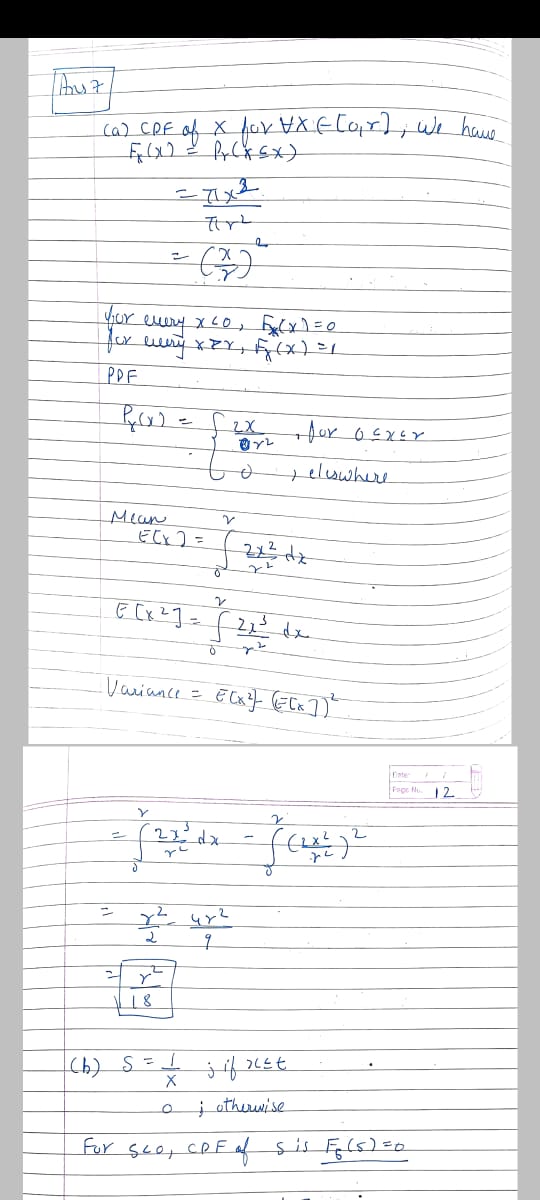 Ans 7
(a) CDF of X for ∀X ∈ [0,r], we have
Fx(x) = Pr(X ≤ x)
= πx²
πr²
= (x/r)²
for every x<0, Fx(x)=0
for every x>r, Fx(x)=1
PDF
Px(x) = { 2x/r² , for 0≤x≤r
0 , elsewhere
Mean
E[X] = ∫₀ʳ 2x²/r² dx
E[X²] = ∫₀ʳ 2x³/r² dx
Variance = E[x²]-(E[x])²
Date / /
Page No. 12
= ∫₀ʳ 2x³/r² dx - ∫₀ʳ (2x²/r²)²
= r²/2 - 4r²/9
= r²/18
(b) S = 1/X ; if x≤t
0 ; otherwise
For S<0, CDF of S is Fs(s)=0